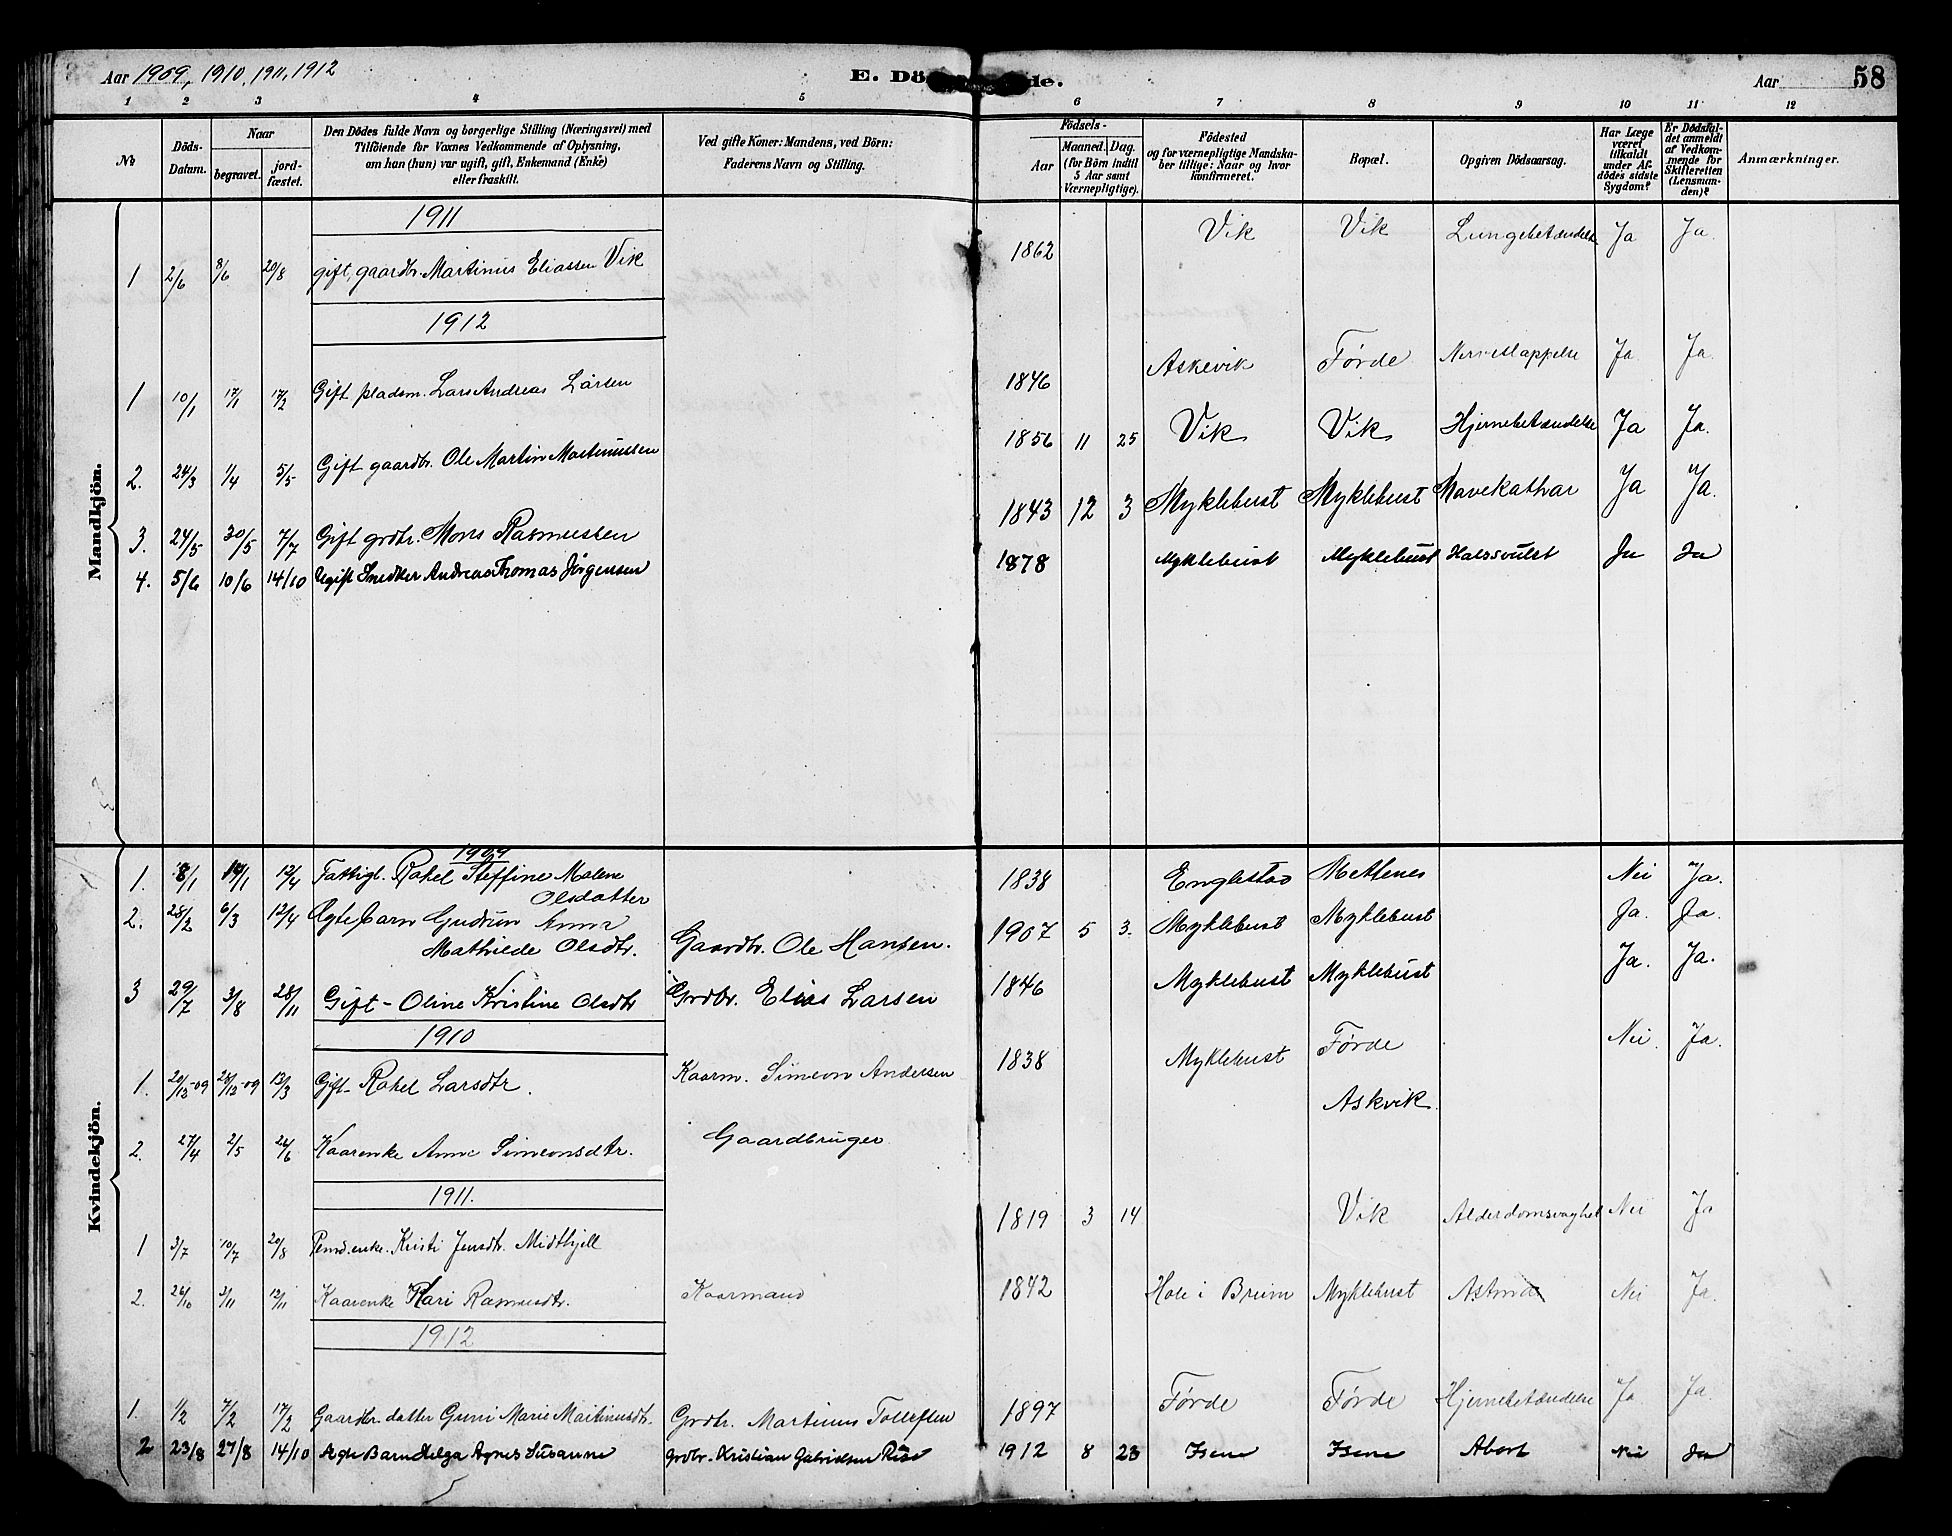 Aar 1909, 1910, 1911, 1912
E. Dö de.
Aar 58
1 2 3 4 5 6 7 8 9 10 11 12
No
Döds-Datum.
Naar
begravet.
jordfæstet.
Den Dödes fulde Navn og borgerlige Stilling (Næringsvei) med
Tilföiende for Voxnes Vedkommende af Oplysning,
om han (hun) var ugift, gift, Enkemand (Enke)
eller fraskilt.
Ved gifte Koner: Mandens, ved Börn:
Faderens Navn og Stilling.
Födsels-
Aar
Maaned. Dag.
(for Börn indtil
5 Aar samt
Værnepligtige).
Födested
og for værnepligtige Mandskaber tillige: Naar og hvor
konfirmeret.
Bopæl.
Opgiven Dödsaarsag.
Har Læge
været
tilkaldt
under Afdödes sidste
Sygdom?
Er Dödsfaldet anmeldt
af Vedkommende for
Skifteretten
(Lensmanden)?
Anmærkninger.
Mandkjön.
1911
1 2/6 8/6 20/8 gift, gaardbr. Martinus Eliassen Vik 1862 Vik Vik Lungebetændelse Ja Ja.
1912
1 10/1 17/1 17/2 Gift pladsm. Lars Andreas Larsen 1846 Askevik Førde Nerveslappelse Ja Ja.
2. 24/3 1/4 5/5 Gift gaardbr. Ole Martin Martinussen 1856 11 25 Vik Vik Hjernebetændelse Ja Ja.
3. 24/5 30/5 7/7 Gift grdbr. Mons Rasmussen 1843 12 3 Myklebust Myklebust Mavekathar Ja Ja.
4. 5/6 10/6 14/10 Ugift Snedker Andreas Thomas Jørgensen 1878 Myklebust Myklebust Halssvulst Ja Ja
Kvindekjön.
1909
1. 8/1 19/1 12/4 Fattigl. Rakel Steffine Malene
Olsdatter 1838 Englestad Mettenes Nei Ja.
2. 28/2 6/3 12/4 Ægte barn Gudrun Anna
Mathilde Olsdtr. Gaardbr. Ole Hansen. 1907 5 3. Myklebust Myklebust Ja. Ja.
3 29/7 3/8 28/11 Gift - Oline Kristine Olsdtr Grdbr. Elias Larsen 1846 Myklebust Myklebust Ja. Ja.
1910
1. 20/12-09 28/12-09 13/3 Gift - Rakel Larsdtr. Kaarm. Simeon Andersen 1838 Myklebust Førde Nei. Ja.
Askvik.
2. 27/4 2/5 26/6 Kaarenke Anne Simeonsdtr. Gaardbruger
1911.
1 3/7 10/7 20/8 Pensd. enke. Kristi Jensdtr. Midthjell 1819 3 14 Vik Alderdomsvaghet Nei Ja
2. 26/10 2/11 12/11 Kaarenke Kari Rasmusdtr. Kaarmand 1842 Hole i Breim Myklebust Astma Nei Ja.
1912
1. 1/2 7/2 17/2 Gaardbr. datter Guni Marie Martinusdtr. Grdbr. Martinus Tollefsen 1897 Førde Førde Hjernebetændelse Ja Ja.
2 23/8 27/8 14/10 Ægte Barn Helga Agnes Susanne Grdbr. Kristian Gabrielsen Risø 1912 8 23 Isene Isene Abort Nei Ja